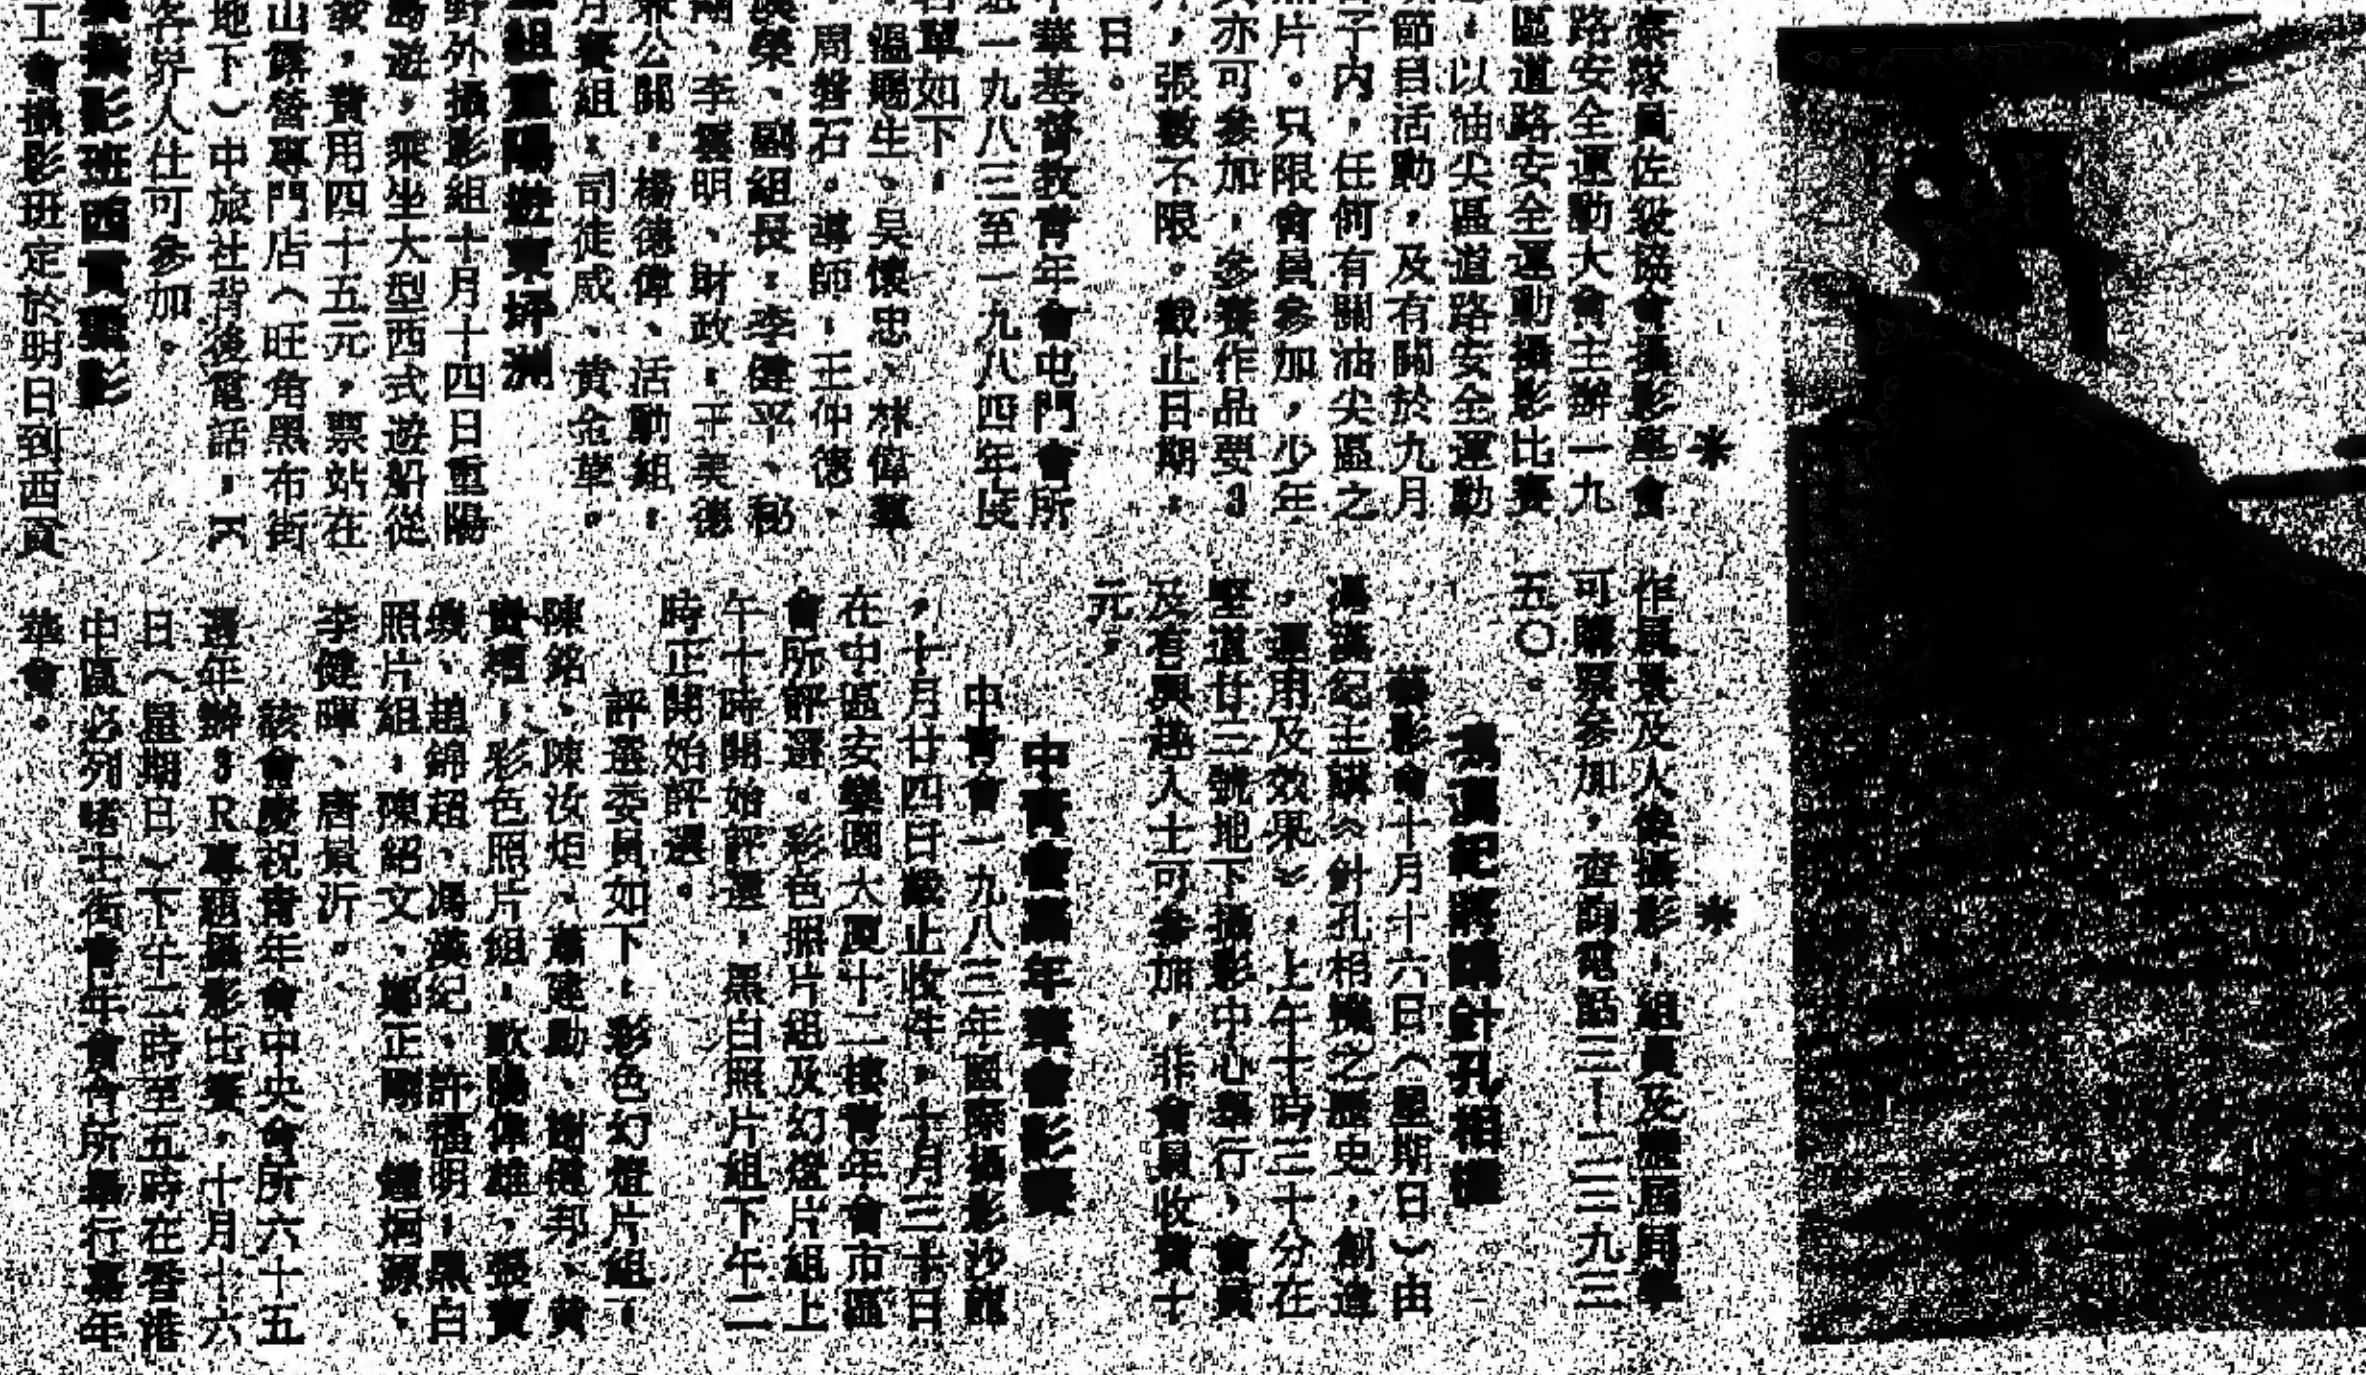 泰隊員佐級協會攝影學會
路安全運動大會主辦一九
區道路安全運動攝影比賽
，以油尖區道路安全運動
節目活動，及有關於九月
子內，任何有關油尖區之
片。只限會員參加，少年
亦可參加，參賽作品要3
，張數不限。截止日期：
日。
華基督教青年會屯門會所
一九八三至一九八四年度
名單如下：
溫賜生、吳懷忠、林偉華
周磐石。導師：王仲德、
榮、副組長：李健平、秘
、李雲明、財政：王美德
公關：楊德偉、活動組：
月賽組：司徒威、黃金華。
組重陽遊東坪洲
野外攝影組十月十四日重陽
島遊，乘坐大型西式遊船從
發，費用四十五元，票站在
山露營專門店（旺角黑布街
地下）中旅社背後電話：K
各界人仕可參加。
攝影班西貢獵影
工會攝影班定於明日到西貢
＊
＊
作風景及人像攝影，組員及歷屆同學
可購票參加，查詢電話三—三三九三
五〇。
馮漢紀將講針孔相機
攝影會十月十六日（星期日）由
馮漢紀主講《針孔相機之歷史，創造
，運用及效果》，上午十時三十分在
堅道廿三號地下攝影中心舉行，會員
及有興趣人士可參加，非會員收費十
元。
中青會嘉年華會影賽
中青會一九八三年國際攝影沙龍
，十月廿四日截止收件，十月三十日
在中區安樂園大廈十二樓青年會市區
會所評選。彩色照片組及幻燈片組上
午十時開始評選，黑白照片組下午二
時正開始評選。
評選委員如下：彩色幻燈片組：
陳銘、陳汝炬、蕭建勳、謝健邦、黃
貴權；彩色照片組：歐陽偉雄、張寶
、趙錦超、馮漢紀、許穗明；黑白
照片組：陳紹文、鄭正剛、鍾炳源、
李健暉、唐景沂。
該會慶祝青年會中央會所六十五
週年辦3R專題攝影比賽，十月十六
日（星期日）下午二時至五時在香港
中區必列啫士街青年會會所舉行嘉年
華會。